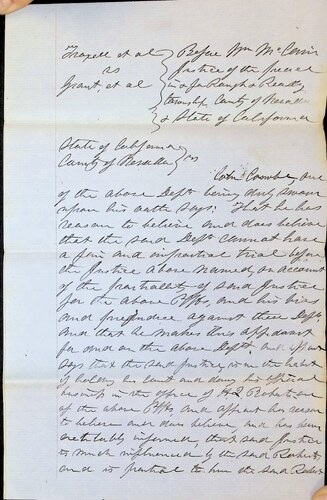 Frazell et al
vs
Grant, et al
Before Wm McConn
Justice of the peace
in & for Rough & Ready
township County of Nevada
& State of California
State of California
County of Nevada } ss
Coombs, one
of the above Defts being duly sworn
upon his oath says: That he has
reason to believe and does believe
that the said Defts cannot have
a fair and impartial trial before
the Justice above named, on account
of the partiality of said Justice
for the above Plffs, and his bias
and prejudice against these Defts
and that he makes this affidavit
for and on the above Defts. and
says that the said Justice, is in the habit
of holding his Court and doing his official
business in the office of H Q Roberts one
of the above Plffs, and affiant has reason
to believe and does believe, and has been
creditably informed that said Justice
is much influenced by the said Roberts
and is partial to him the said Roberts